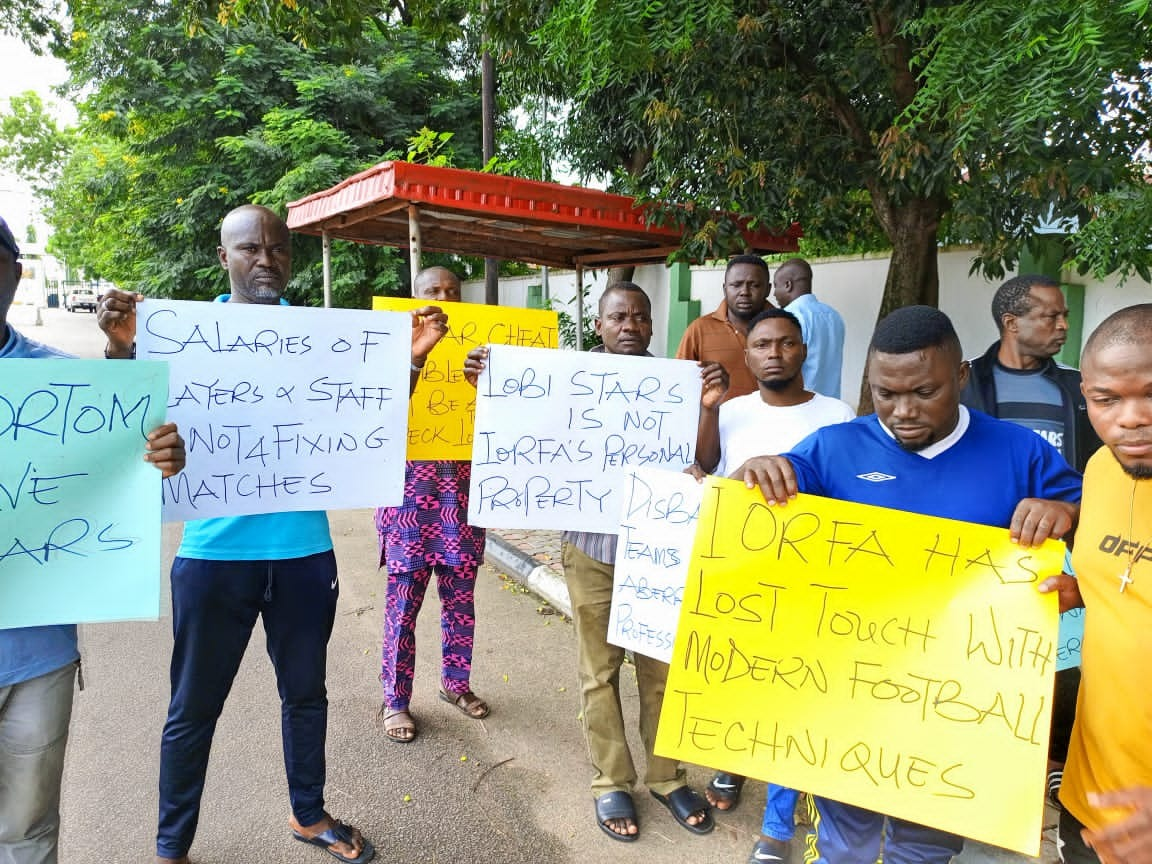 ORTOM
VE
ARS
SALARIES OF
LAYERS & STAFF
NOT 4 FIXING
MATCHES
AR CHEAT
BE
ECK
LOBI STARS
IS NOT
IORFA'S PERSONAL
PROPERTY
DISBA
TEAMS
ABER
PROFESS
IORFA HAS
LOST TOUCH WITH
MODERN FOOTBALL
TECHNIQUES
OFF
ER